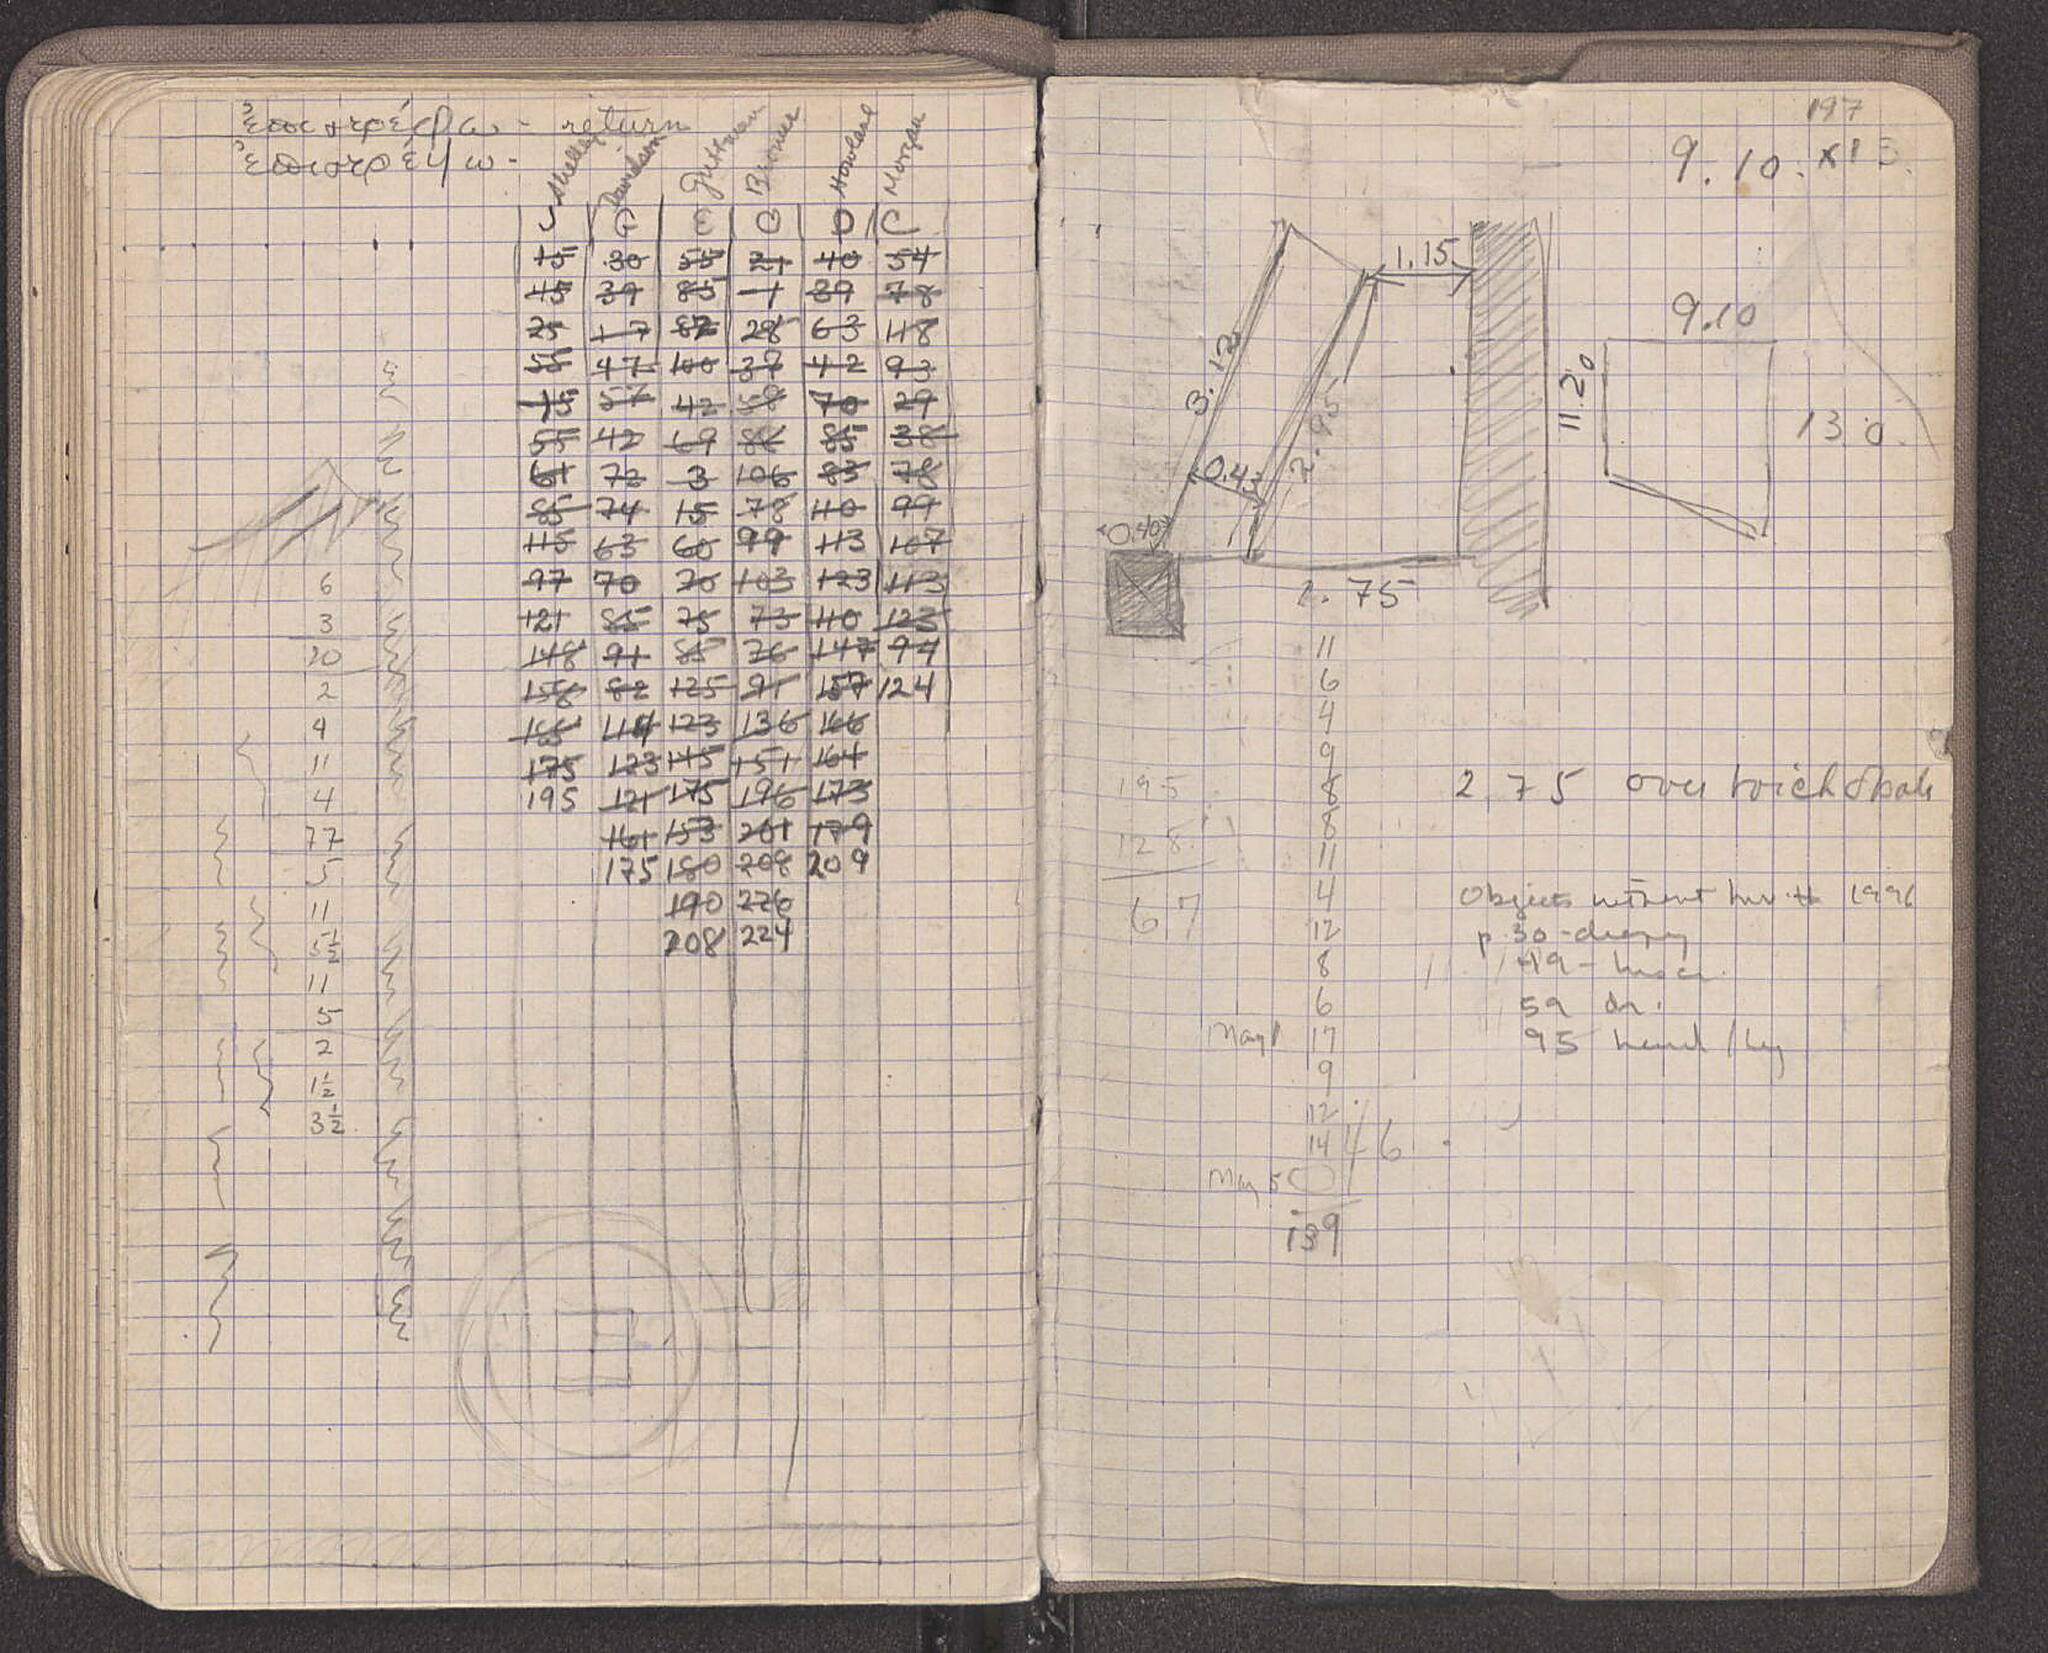 ἐπιστρέφω - return
ἐπιστρέψω -
Shelley Davidson Guttman Bronner Howland Morgan
15 30 55 21 40 54
45 39 85 1 39 78
25 17 82 28 63 48
55 47 100 37 42 93
15 57 42 58 70 29
55 42 69 86 85 38
61 72 3 106 83 78
85 74 15 78 110 99
115 63 60 99 113 107
97 70 70 103 123 113
121 85 75 73 110 123
148 91 85 76 147 94
158 82 125 91 157 124
165 114 123 136 166
175 123 145 151 164
195 121 175 196 173
161 153 201 179
175 180 208 209
190 226
208 224
6
3
20
2
9
11
4
77
5
11
5½
11
5
2
1½
3½
197
9.10. x13.
1.15
3.12
2.95
0.43
0.40
2.75
9.10
11.20
13.0
11
6
4
9
8
8
11
4
12
8
6
May 1 17
9
12
14 46
May 5 0
139
195
128
67
2.75 over
Objects without Inv. # 1996
p. 30 - drapery
49 -
59 dr.
95 hand / leg